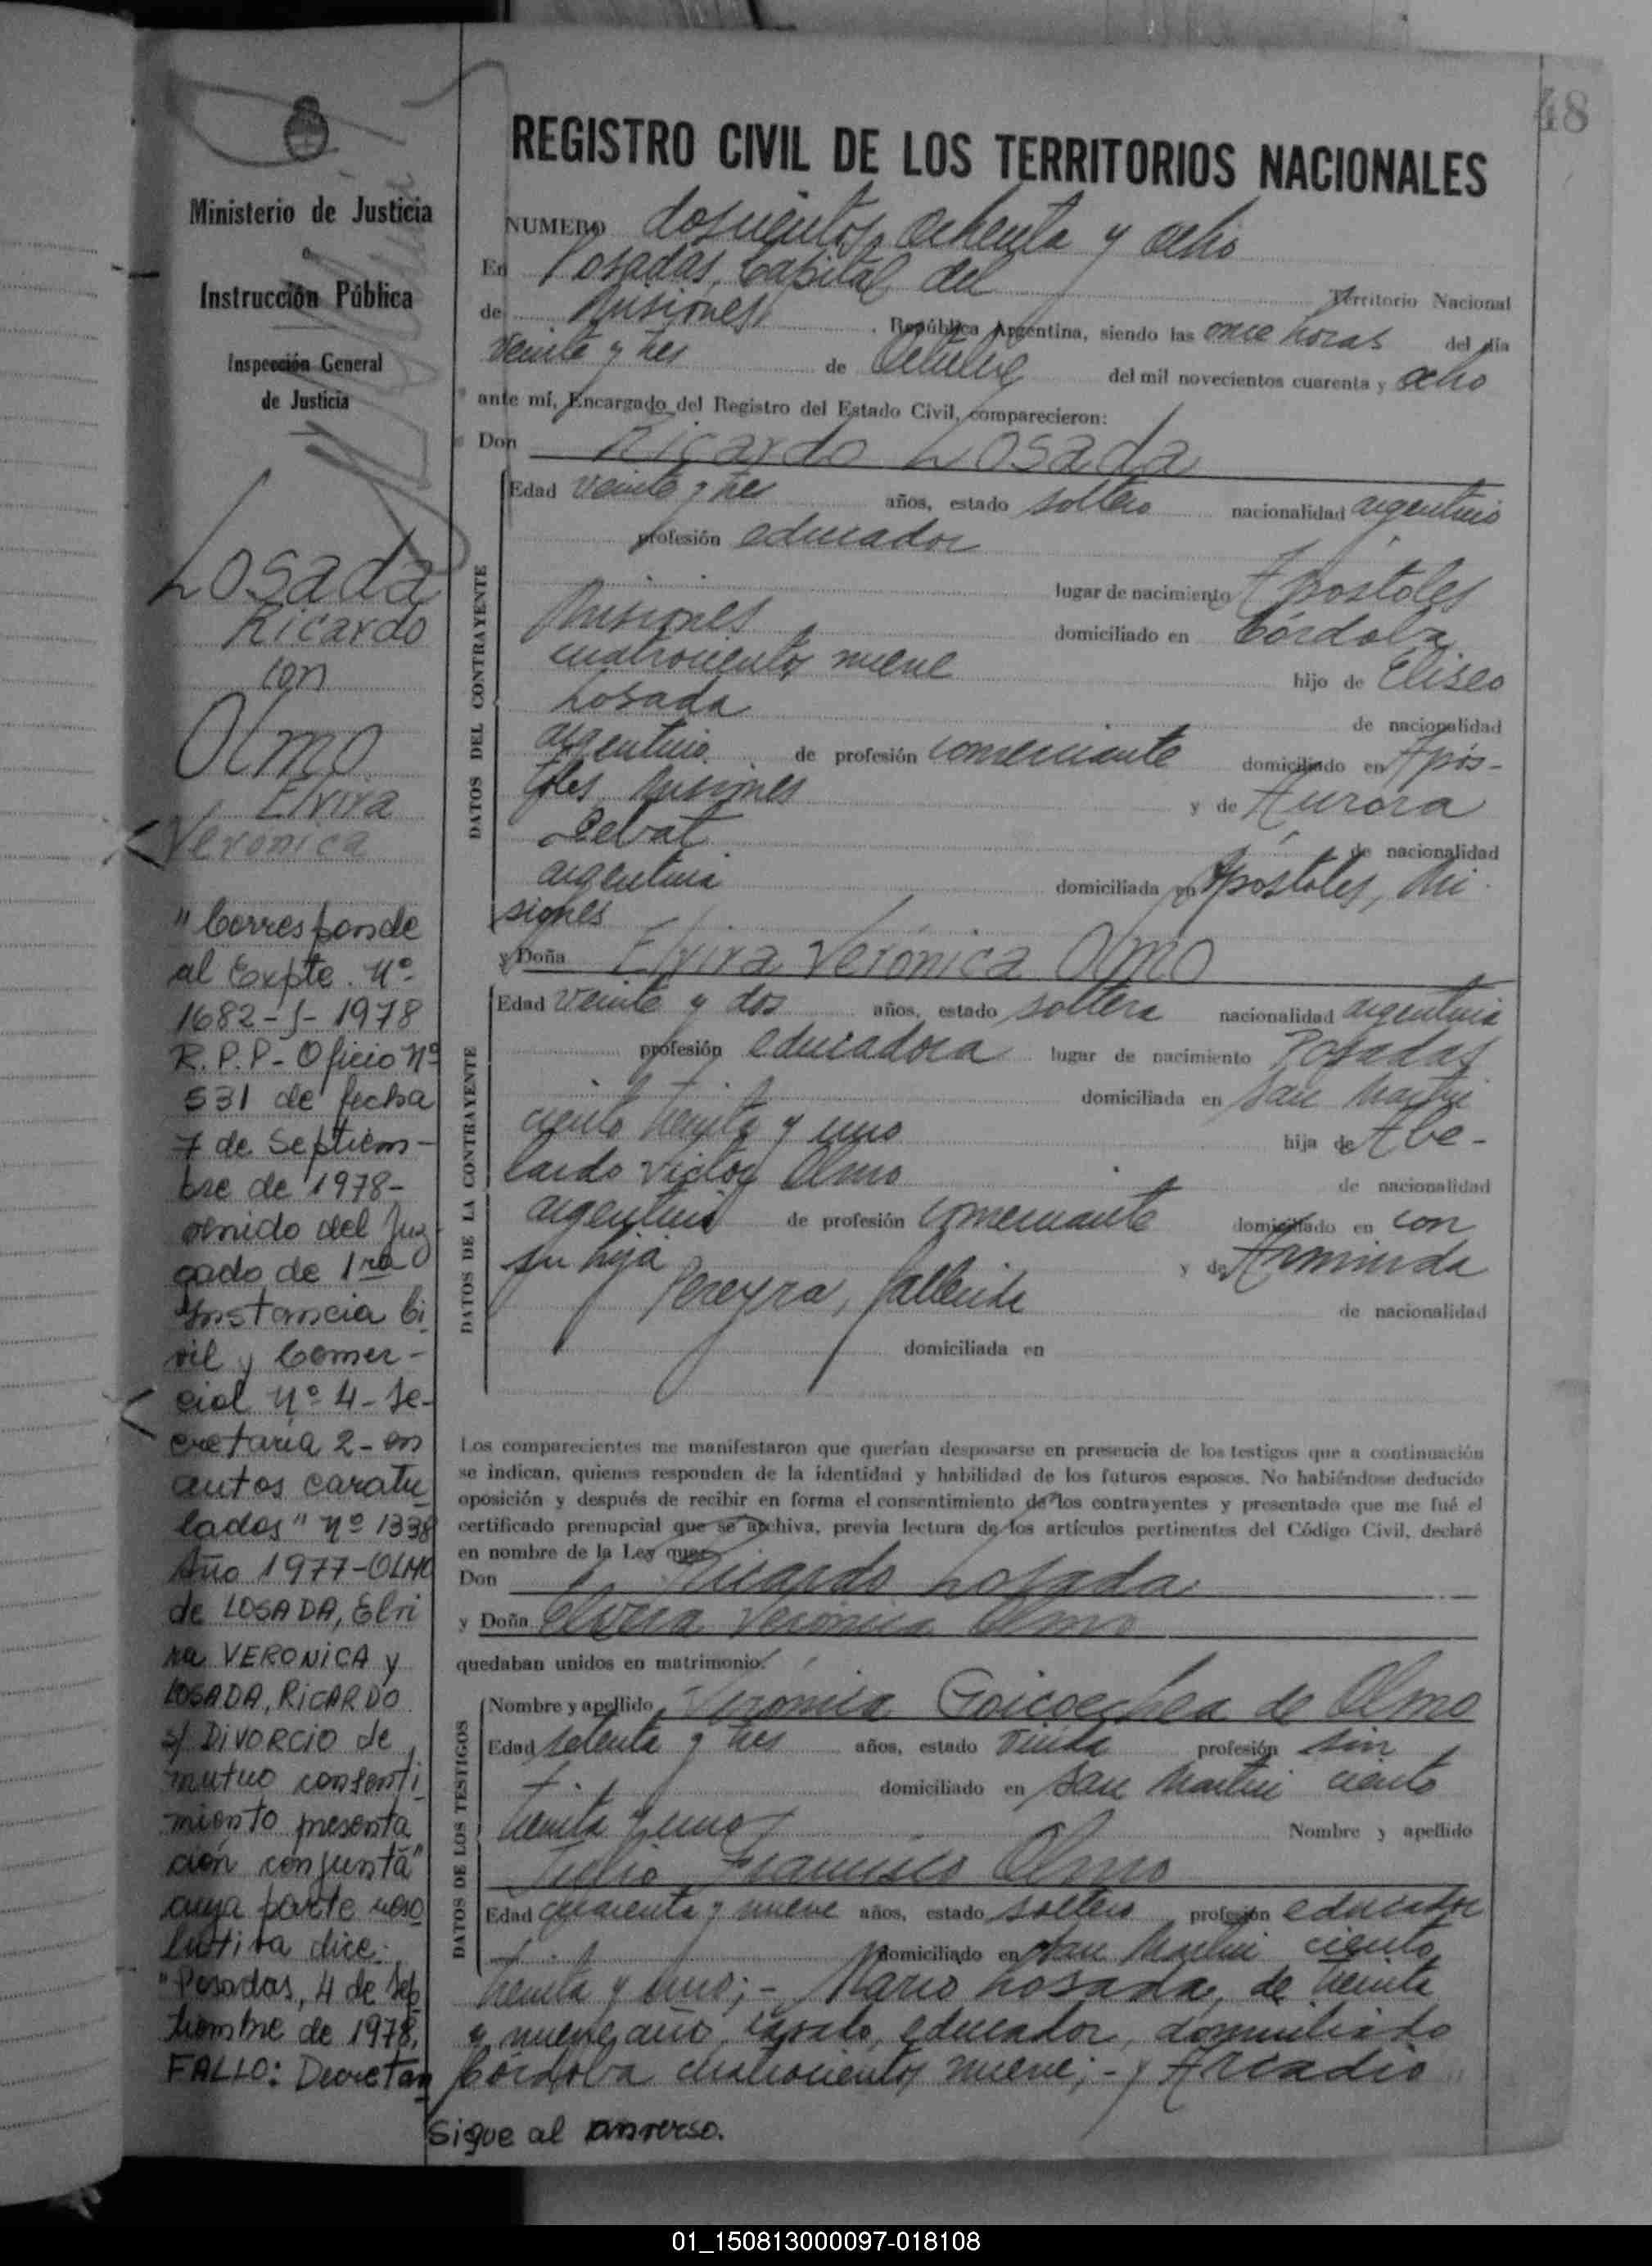 48
Ministerio de Justicia
e
Instrucción Pública
Inspección General
de Justicia
Losada
Ricardo
con
Olmo
Elvira
Verónica
"Corresponde
al Expte. Nº
1682-J-1978
R.P.P- Oficio Nº
531 de fecha
7 de Septiem-
bre de 1978-
venido del Juz
gado de 1ra
Instancia Ci
vil y Comer-
cial Nº 4-Se-
cretaria 2- en
autos caratu
lados" nº 1338
Año 1977-OLMO
de LOSADA, Elvi
ra VERONICA y
LOSADA, RICARDO
s/ DIVORCIO de
mutuo consenti
miento presenta
ción conjunta"
cuya parte reso
lutiva dice:
"Posadas, 4 de Sep
tiembre de 1978,
FALLO: Decretan
Sigue al anverso.
REGISTRO CIVIL DE LOS TERRITORIOS NACIONALES
NUMERO doscientos ochenta y ocho
En Posadas, Capital del Territorio Nacional
de Misiones, República Argentina, siendo las once horas del día
veinte y tres de Octubre del mil novecientos cuarenta y ocho
ante mí, Encargado del Registro del Estado Civil, comparecieron:
Don Ricardo Losada
DATOS DEL CONTRAYENTE
Edad veinte y tres años, estado soltero nacionalidad argentino
profesión educador
lugar de nacimiento Apóstoles
Misiones domiciliado en Córdoba
cuatrocientos nueve hijo de Eliseo
Losada de nacionalidad
argentino de profesión comerciante domiciliado en Após-
toles Misiones y de Aurora
de nacionalidad
argentina domiciliada en Apóstoles, Mi
siones
y Doña Elvira Verónica Olmo
DATOS DE LA CONTRAYENTE
Edad veinte y dos años, estado soltera nacionalidad argentina
profesión educadora lugar de nacimiento Posadas
domiciliada en San Martín
ciento treinta y uno hija de Abe-
lardo Victor Olmo de nacionalidad
argentino de profesión comerciante domiciliado en con
su hija y de Arminda
Pereyra, fallecida de nacionalidad
domiciliada en
Los comparecientes me manifestaron que querían desposarse en presencia de los testigos que a continuación
se indican, quienes responden de la identidad y habilidad de los futuros esposos. No habiéndose deducido
oposición y después de recibir en forma el consentimiento de los contrayentes y presentado que me fué el
certificado prenupcial que se archiva, previa lectura de los artículos pertinentes del Código Civil, declaré
en nombre de la Ley que
Don Ricardo Losada
y Doña Elvira Verónica Olmo
quedaban unidos en matrimonio.
DATOS DE LOS TESTIGOS
Nombre y apellido Verónica Goicoechea de Olmo
Edad setenta y tres años, estado viuda profesión sin
domiciliado en San Martín ciento
treinta y uno Nombre y apellido
Julio Francisco Olmo
Edad cuarenta y nueve años, estado soltero profesión educador
domiciliado en San Martín ciento
treinta y uno;- Mario Losada, de treinta
y nueve años, casado, educador, domiciliado
Córdoba cuatrocientos nueve;- y Arcadio
01_150813000097-018108